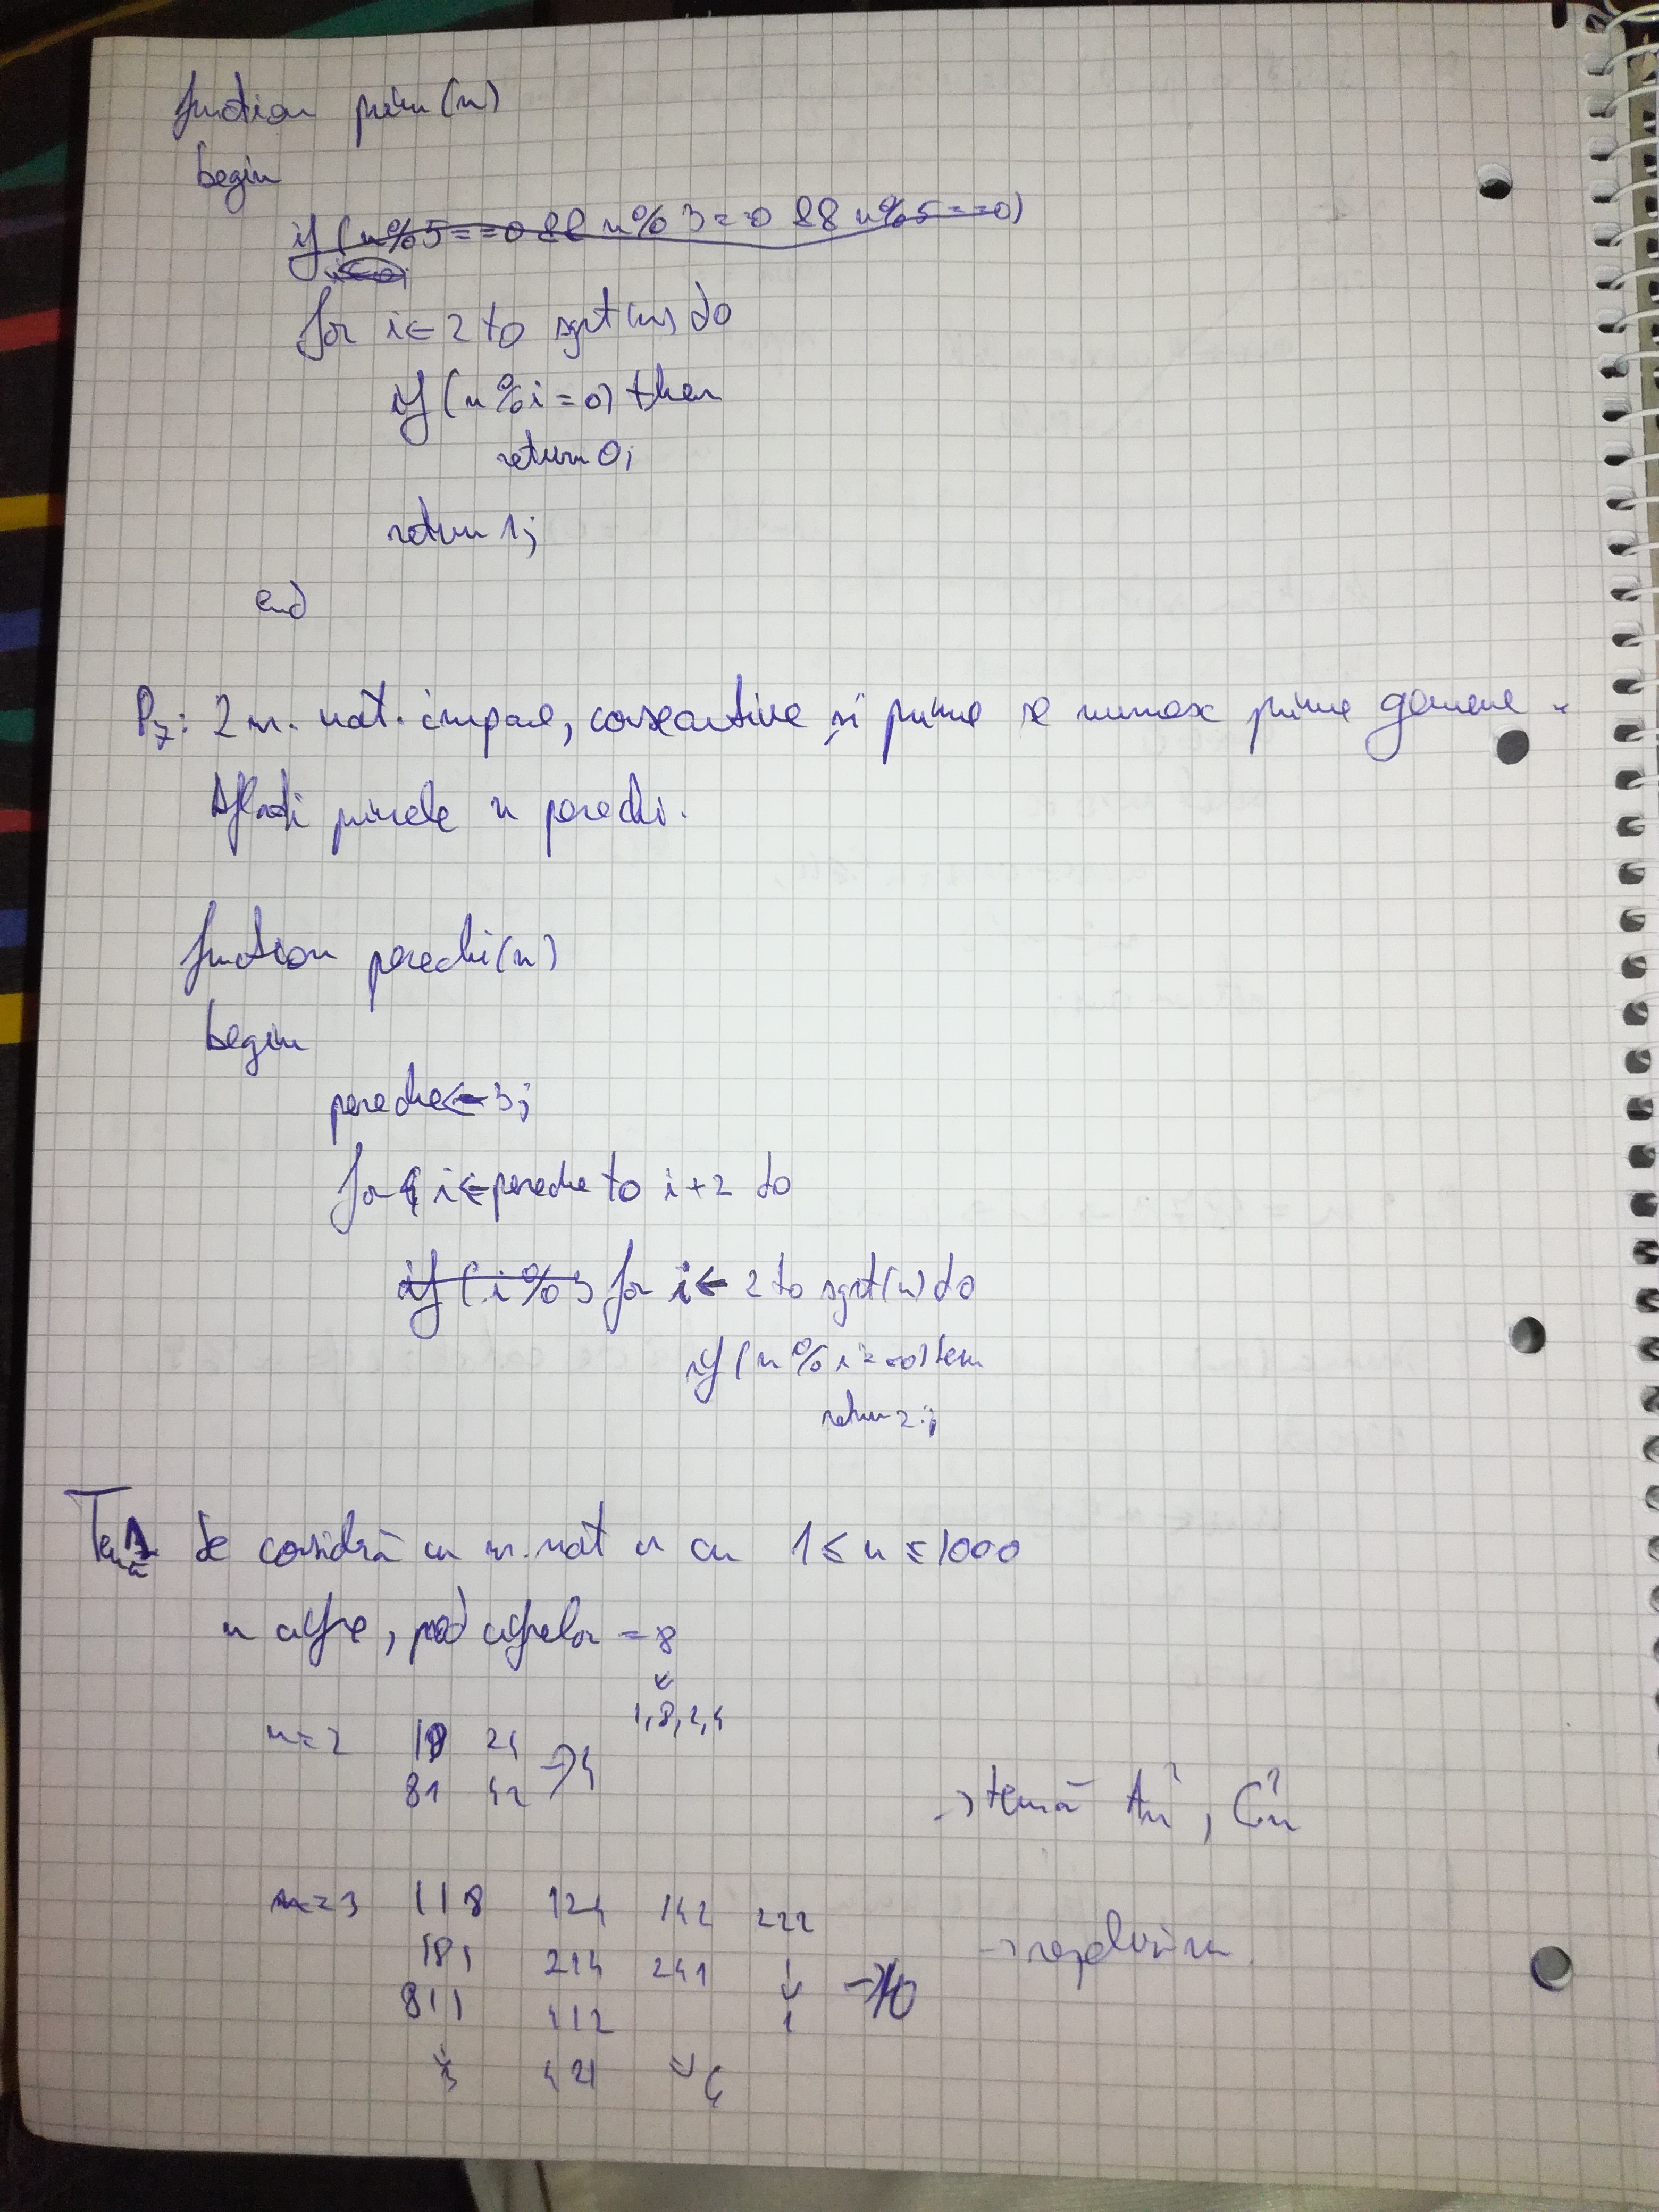 function prim(n)
begin
if (n%5==0 && n%3==0 && n%5==0)
for i← 2 to sqrt(n) do
if (n%i=0) then
return 0;
return 1;
end
P7: 2 nr. nat. impare, consecutive și prime se numesc prime gemene.
Aflați primele n perechi.
function perechi(n)
begin
pereche← 3;
for i←pereche to i+2 do
if (i%3 for i← 2 to sqrt(n) do
if (n%i==0) then
return 2;
Temă 1 Se consideră un nr. nat n cu 1 ≤ n ≤ 1000
n cifre, prod cifrelor = 8
1,8,2,4
n=2 18 24
81 42 →4
→ temă An?, Cn?
n=3 118 124 142 222
181 214 241 ↓ →10
→ rezolvăm
811 412 1
3 421 6